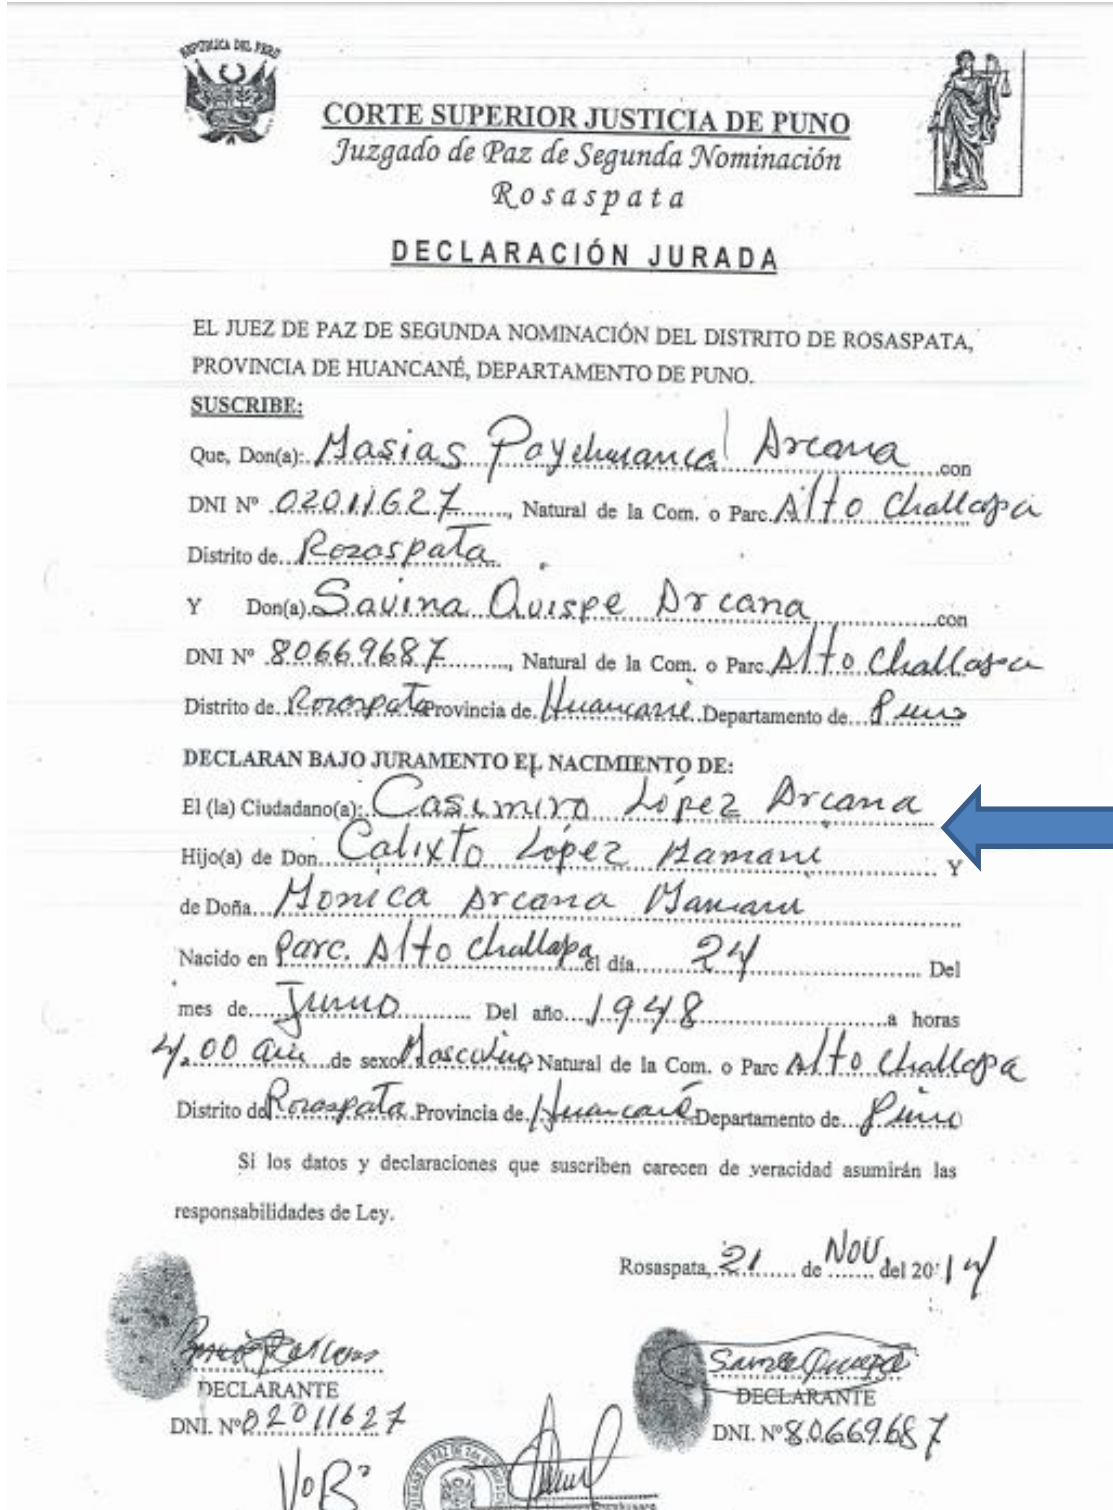 REPUBLICA DEL PERÚ
CORTE SUPERIOR JUSTICIA DE PUNO
Juzgado de Paz de Segunda Nominación
Rosaspata
DECLARACIÓN JURADA
EL JUEZ DE PAZ DE SEGUNDA NOMINACIÓN DEL DISTRITO DE ROSASPATA,
PROVINCIA DE HUANCANÉ, DEPARTAMENTO DE PUNO.
SUSCRIBE:
Que, Don(a): Masias Arcana con
DNI Nº 02011627, Natural de la Com. o Parc. Alto Challapa
Distrito de Rozaspata
Y Don(a). Savina Quispe Arcana con
DNI Nº 80669687, Natural de la Com. o Parc. Alto Challapa
Distrito de Rozaspata Provincia de Huancané Departamento de Puno
DECLARAN BAJO JURAMENTO EL NACIMIENTO DE:
El (la) Ciudadano(a): Casimiro López Arcana
Hijo(a) de Don Calixto López Mamani Y
de Doña Monica Arcana Mamani
Nacido en Parc. Alto Challapa el día 24 Del
mes de Junio Del año 1948 a horas
4.00 am de sexo Masculino Natural de la Com. o Parc Alto Challapa
Distrito de Rozaspata Provincia de Huancané Departamento de Puno
Si los datos y declaraciones que suscriben carecen de veracidad asumirán las
responsabilidades de Ley.
Rosaspata, 21 de NOV del 2014
DECLARANTE
DNI. Nº 02011627
DECLARANTE
DNI. Nº 80669687
VoBº